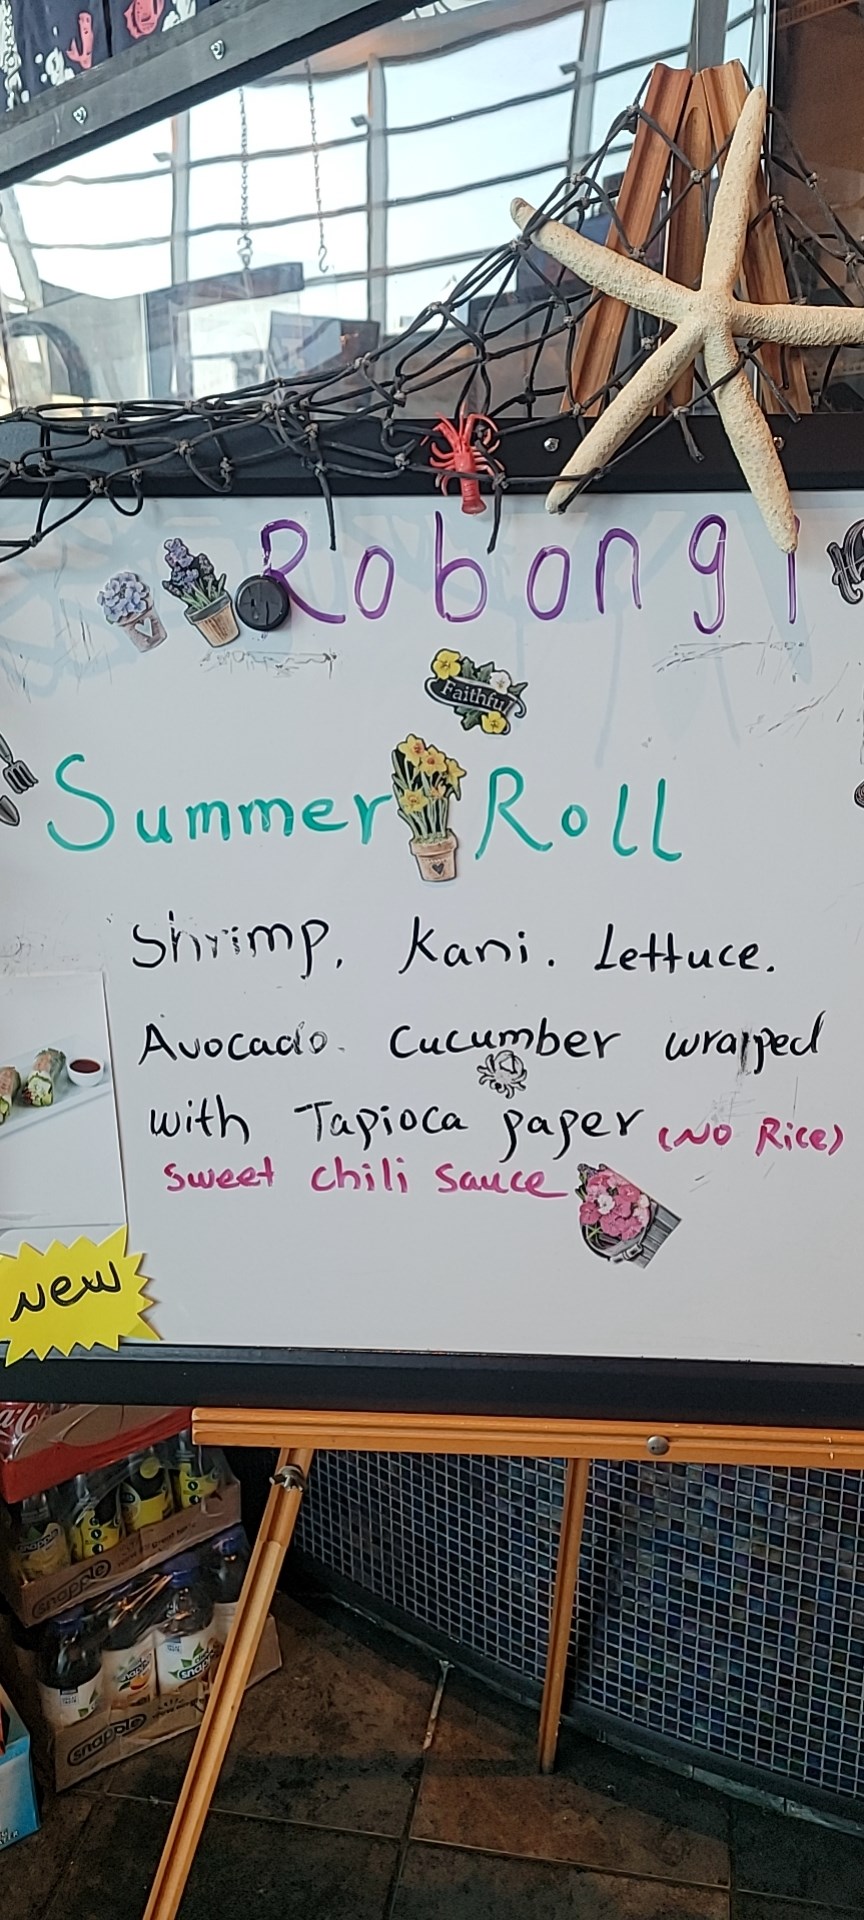 Robongi
Faithful
Summer Roll
Shrimp. Kani. Lettuce.
Avocado. Cucumber wrapped
with Tapioca paper (No Rice)
Sweet chili Sauce
New
snapple
snapple